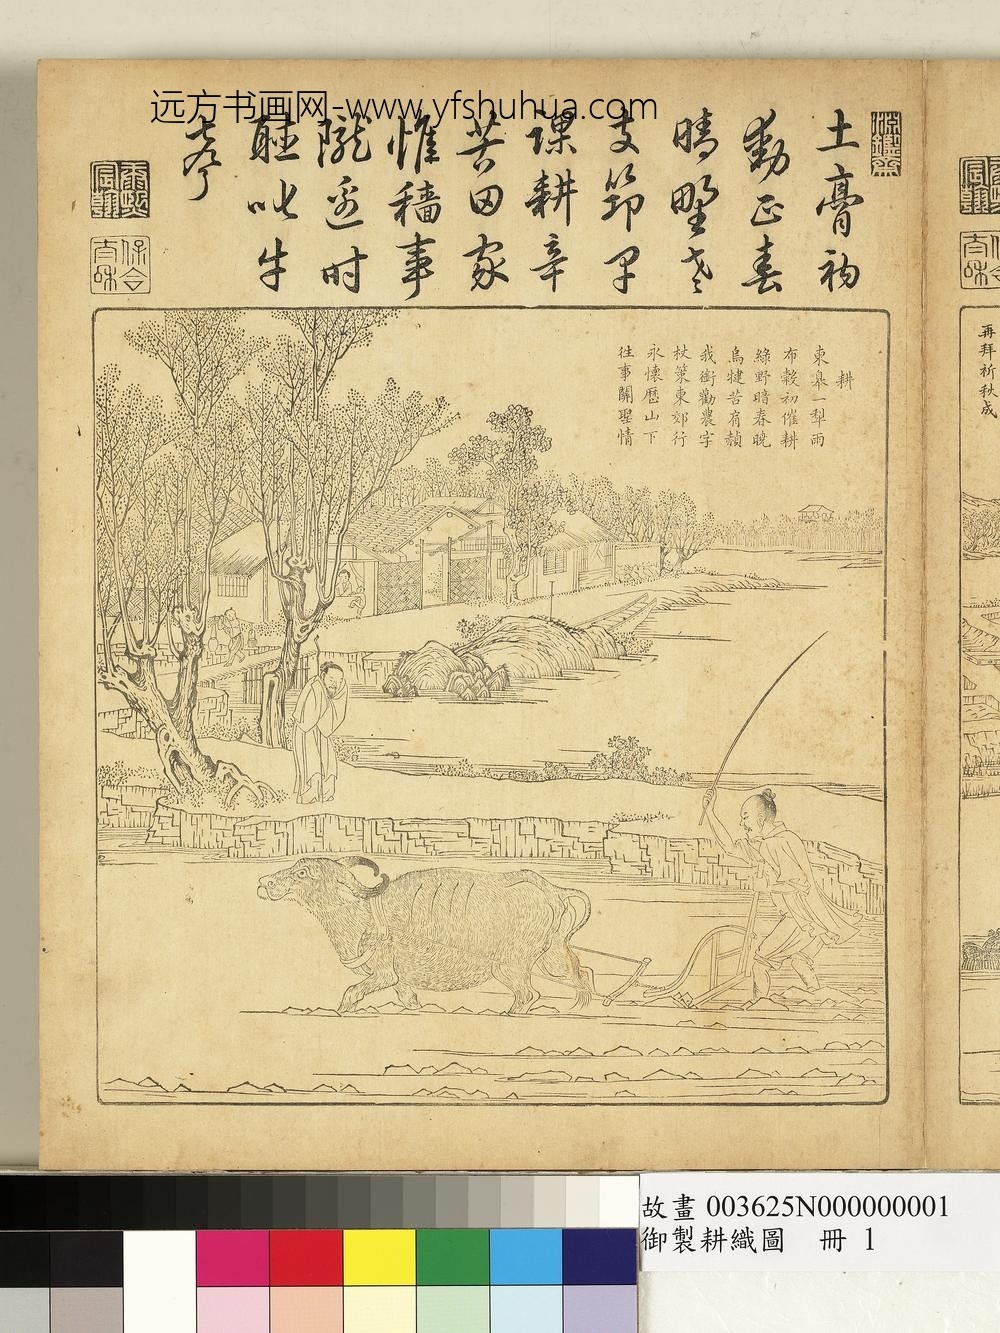 远方书画网-www.yfshuhua.com
淵鑒齋
土膏初
動正春
晴野老
支筇早
課耕辛
苦田家
惟穡事
隴邊时
聽叱牛
聲
康熙宸翰
保合太和
耕
東皐一犁雨
布穀初催耕
綠野暗春曉
烏犍苦肩赬
我銜勸農字
杖策東郊行
永懷歷山下
往事關聖情
再拜祈秋成
故畫 003625N000000001
御製耕織圖 冊 1